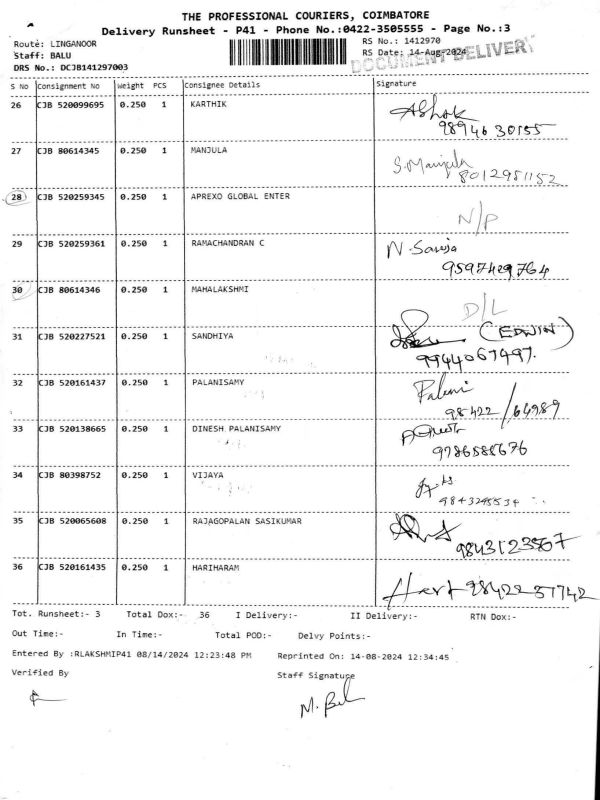 THE PROFESSIONAL COURIERS, COIMBATORE
Delivery Runsheet - P41 - Phone No.:0422-3505555 - Page No.:3
Route: LINGANOOR
Staff: BALU
DRS No.: DCJB141297003
RS No.: 1412970
RS Date: 14-Aug-2024
DOCUMENT DELIVERY
S No Consignment No Weight PCS Consignee Details Signature
26 CJB 520099695 0.250 1 KARTHIK Ashok
98946 30155
27 CJB 80614345 0.250 1 MANJULA S. Manjula
8012981152
28 CJB 520259345 0.250 1 APREXO GLOBAL ENTER N/P
29 CJB 520259361 0.250 1 RAMACHANDRAN C N. Saroja
9597429764
30 CJB 80614346 0.250 1 MAHALAKSHMI D/L
31 CJB 520227521 0.250 1 SANDHIYA (EDWIN)
9944067497.
32 CJB 520161437 0.250 1 PALANISAMY Palani
98422/64989
33 CJB 520138665 0.250 1 DINESH PALANISAMY
9786588676
34 CJB 80398752 0.250 1 VIJAYA
9843245534
35 CJB 520065608 0.250 1 RAJAGOPALAN SASIKUMAR
36 CJB 520161435 0.250 1 HARIHARAM Hari 9842237742
Tot. Runsheet:- 3 Total Dox:- 36 I Delivery:- II Delivery:- RTN Dox:-
Out Time:- In Time:- Total POD:- Delvy Points:-
Entered By :RLAKSHMIP41 08/14/2024 12:23:48 PM Reprinted On: 14-08-2024 12:34:45
Verified By Staff Signature